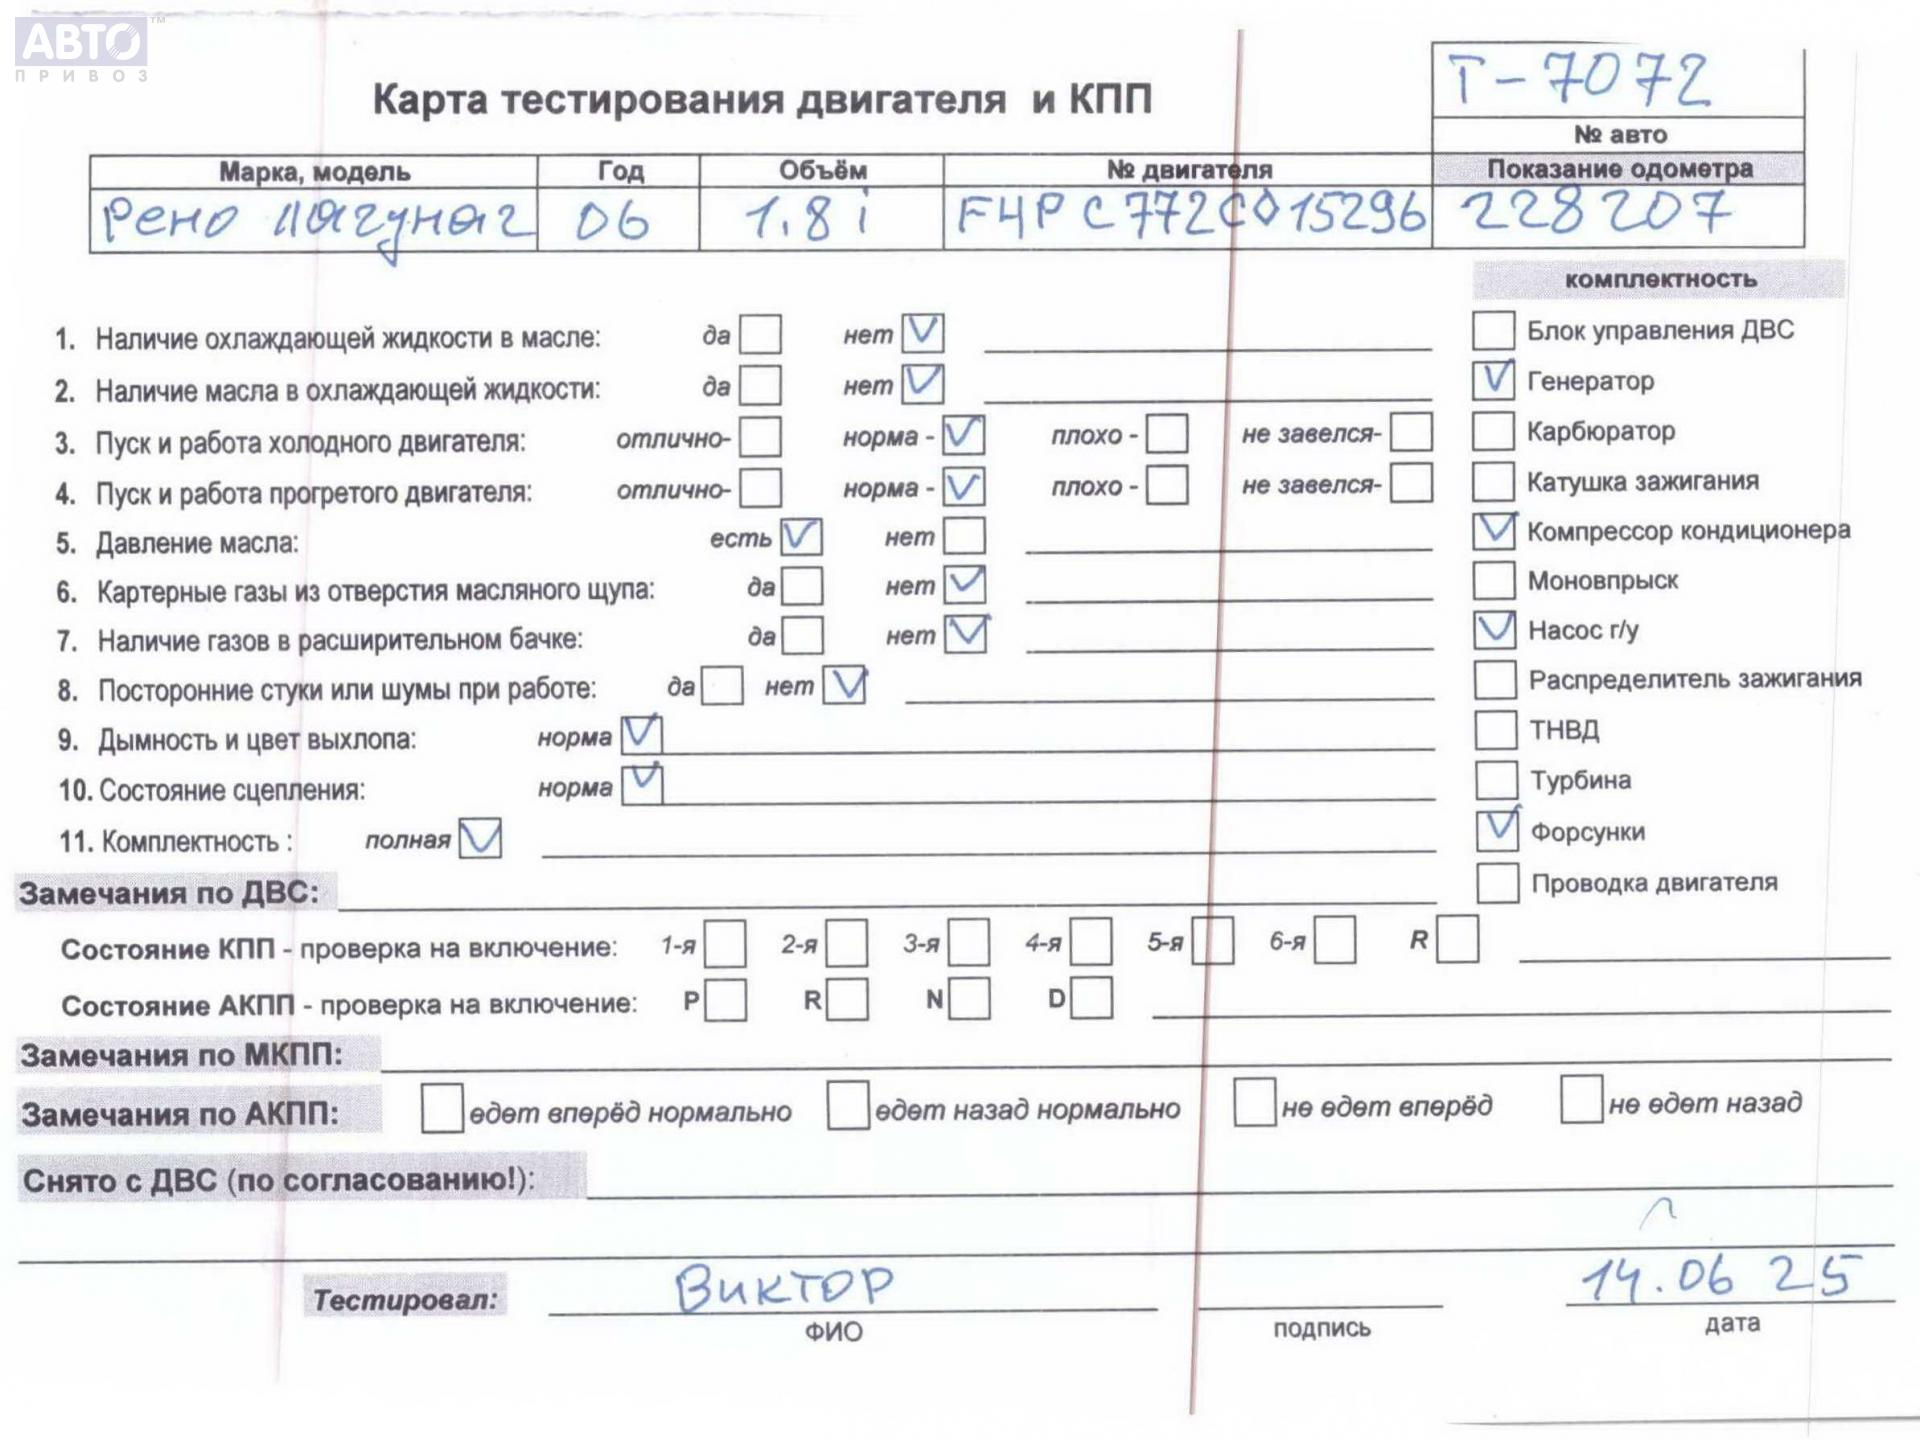 АВТО™
ПРИВОЗ
Т-7072
Карта тестирования двигателя и КПП
№ авто
Марка, модель Год Объём № двигателя Показание одометра
Рено Лагуна 2 06 1.8 i F4P C772C015296 228207
комплектность
1. Наличие охлаждающей жидкости в масле: да нет ✓ Блок управления ДВС
2. Наличие масла в охлаждающей жидкости: да нет ✓ ✓ Генератор
3. Пуск и работа холодного двигателя: отлично- норма - ✓ плохо - не завелся- Карбюратор
4. Пуск и работа прогретого двигателя: отлично- норма - ✓ плохо - не завелся- Катушка зажигания
5. Давление масла: есть ✓ нет ✓ Компрессор кондиционера
6. Картерные газы из отверстия масляного щупа: да нет ✓ Моновпрыск
7. Наличие газов в расширительном бачке: да нет ✓ ✓ Насос г/у
8. Посторонние стуки или шумы при работе: да нет ✓ Распределитель зажигания
9. Дымность и цвет выхлопа: норма ✓ ТНВД
10. Состояние сцепления: норма ✓ Турбина
11. Комплектность : полная ✓ ✓ Форсунки
Замечания по ДВС: Проводка двигателя
Состояние КПП - проверка на включение: 1-я 2-я 3-я 4-я 5-я 6-я R
Состояние АКПП - проверка на включение: P R N D
Замечания по МКПП:
Замечания по АКПП: едет вперёд нормально едет назад нормально не едет вперёд не едет назад
Снято с ДВС (по согласованию!):
Тестировал: Виктор 14.06 25
ФИО подпись дата